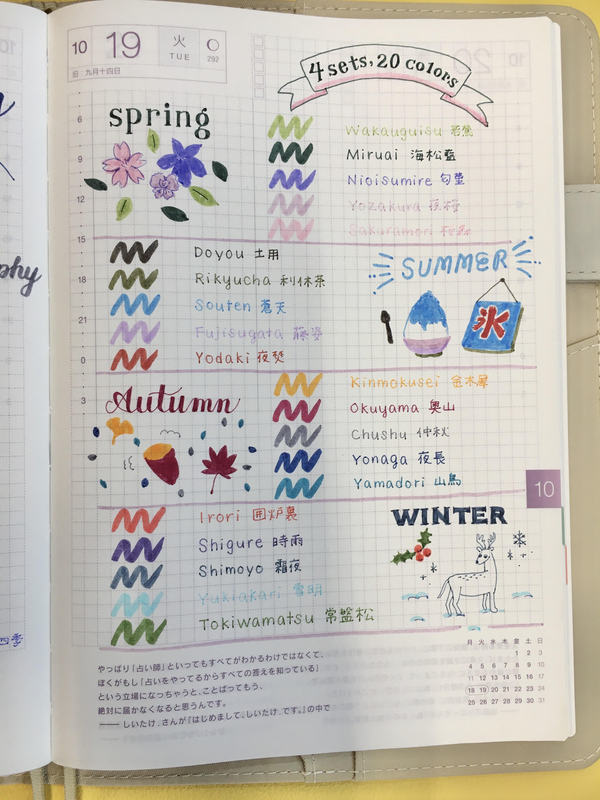 10 19 火 TUE 292
旧 九月十四日
4 sets, 20 colors
spring
Wakauguisu 若鶯
Miruai 海松藍
Nioisumire 匂菫
Yozakura 夜桜
Sakuramori 桜森
Doyou 土用
Rikyucha 利休茶
Souten 蒼天
Fujisugata 藤姿
Yodaki 夜焚
SUMMER
氷
Autumn
Kinmokusei 金木犀
Okuyama 奥山
Chushu 仲秋
Yonaga 夜長
Yamadori 山鳥
Irori 囲炉裏
Shigure 時雨
Shimoyo 霜夜
Yukiakari 雪明
Tokiwamatsu 常盤松
WINTER
6
9
12
15
18
21
0
3
10
phy
四季
やっぱり「占い師」といってもすべてがわかるわけではなくて、
ぼくがもし「占いをやってるからすべての答えを知っている」
という立場になっちゃうと、ことばってもう、
絶対に届かなくなると思うんです。
──しいたけ.さんが『はじめまして、しいたけ.です。』の中で
月 火 水 木 金 土 日
1 2 3
4 5 6 7 8 9 10
11 12 13 14 15 16 17
18 19 20 21 22 23 24
25 26 27 28 29 30 31